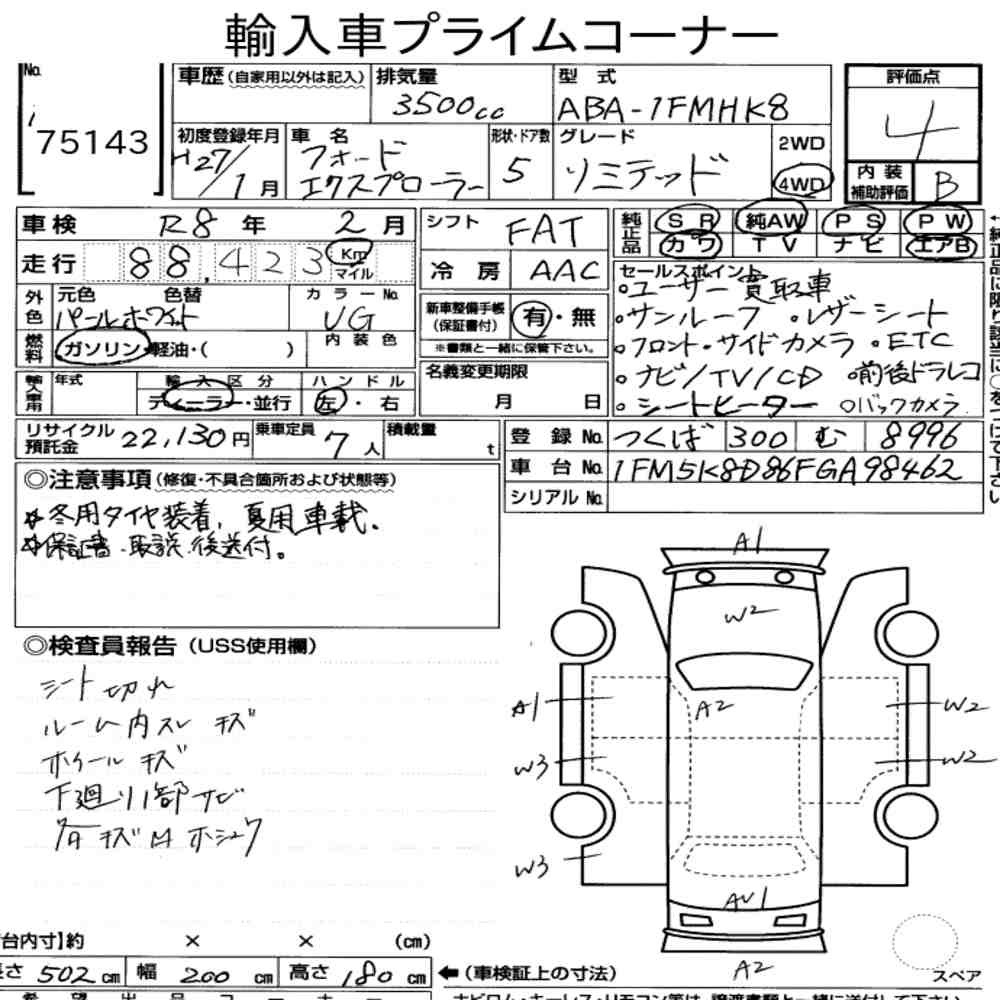 輸入車プライムコーナー
No.
i
75143
車歴(自家用以外は記入)
排気量
3500cc
型式
ABA-1FMHK8
評価点
4
初度登録年月
H27/1月
車名
フォード
エクスプローラー
形状・ドア数
5
グレード
リミテッド
2WD
4WD
内装
補助評価
B
車検 R8年 2月
走行 88,423 Km
マイル
シフト FAT
冷房 AAC
純正品
SR 純AW PS PW
カワ TV ナビ エアB
外色
元色 色替
パールホワイト
カラーNo.
UG
燃料
ガソリン・軽油・( )
内装色
新車整備手帳
(保証書付)
有・無
※書類と一緒に保管下さい。
セールスポイント
。ユーザー買取車
。サンルーフ 。レザーシート
。フロント・サイドカメラ 。ETC
。ナビ/TV/CD 。前後ドラレコ
。シートヒーター ○バックカメラ
輸入車用
年式
輸入区分
ディーラー・並行
ハンドル
左・右
名義変更期限
月 日
リサイクル
預託金
22,130円
乗車定員 7人
積載量 t
登録No. つくば 300 む 8996
車台No. 1FM5K8D86FGA98462
シリアルNo.
◎注意事項(修復・不具合箇所および状態等)
☆冬用タイヤ装着、夏用車載.
☆保証書・取説、後送付。
◎検査員報告(USS使用欄)
シート切れ
ルーム内スレ キズ
ホイール キズ
下廻り1部サビ
各キズ凹ホシュウ
A1
W2
A1
A2
W2
W3
W2
W3
AU1
A2
スペア
台内寸】約 × × (cm)
長さ 502cm 幅 200cm 高さ 180cm
←(車検証上の寸法)